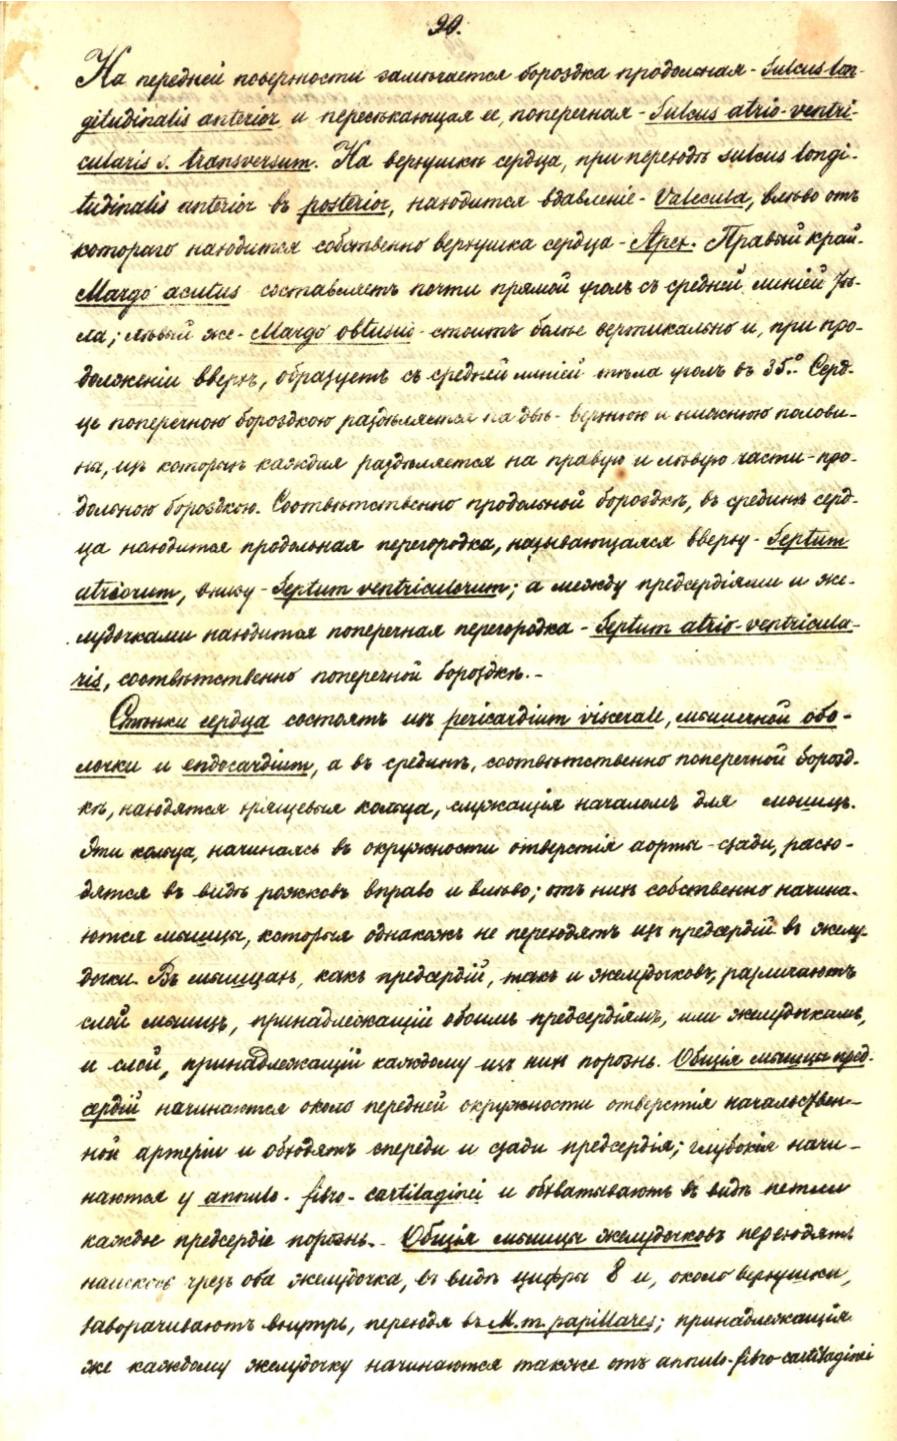 90.
На передней поверхности замѣчается бороздка продольная - Sulcus lon-
gitudinalis anterior и пересѣкающая ее, поперечная - Sulcus atrio-ventri-
cularis s. transversum. На верхушкѣ сердца, при переходѣ sulcus longi-
tudinalis anterior въ posterior, находится вдавленіе - Valecula, влѣво отъ
котораго находится собственно верхушка сердца - Apex. Правый край -
Margo acutus составляетъ почти прямой уголъ съ средней линіей тѣ-
ла; лѣвый же - Margo obtusus - стоитъ болѣе вертикально и, при про-
долженіи вверхъ, образуетъ съ средней линіей тѣла уголъ въ 35°. Серд-
це поперечною бороздкою раздѣляется на двѣ - верхнюю и нижнюю полови-
ны, изъ которыхъ каждая раздѣляется на правую и лѣвую части - про-
дольною бороздкою. Соотвѣтственно продольной бороздкѣ, въ срединѣ серд-
ца находится продольная перегородка, называющаяся вверху - Septum
atriorum, внизу - Septum ventriculorum; а между предсердіями и же-
лудочками находится поперечная перегородка - Septum atrio-ventricula-
ris, соотвѣтственно поперечной бороздкѣ. -
Стѣнки сердца состоятъ изъ pericardium viscerale, мышечной обо-
лочки и endocardium, а въ срединѣ, соотвѣтственно поперечной борозд-
кѣ, находятся хрящевыя кольца, служащія началомъ для мышцъ.
Эти кольца, начинаясь въ окружности отверстія аорты - сзади, расхо-
дятся въ видѣ рожковъ вправо и влѣво; отъ нихъ собственно начина-
ются мышцы, которыя однакожъ не переходятъ изъ предсердій въ желу-
дочки. Въ мышцахъ, какъ предсердій, такъ и желудочковъ, различаютъ
слой мышцъ, принадлежащій обоимъ предсердіямъ, или желудочкамъ,
и слой, принадлежащій каждому изъ нихъ порознь. Общія мышцы пред-
сердій начинаются около передней окружности отверстія начальствен-
ной артеріи и обходятъ спереди и сзади предсердія; глубокія начи-
наются у annulo-fibro-cartilaginei и обхватываютъ въ видѣ петли
каждое предсердіе порознь. - Общія мышцы желудочковъ переходятъ
наискось чрезъ оба желудочка, въ видѣ цифры 8 и, около верхушки,
заворачиваютъ внутрь, переходя въ M.m. papillares; принадлежащія
же каждому желудочку начинаются также отъ annulo-fibro-cartilaginei